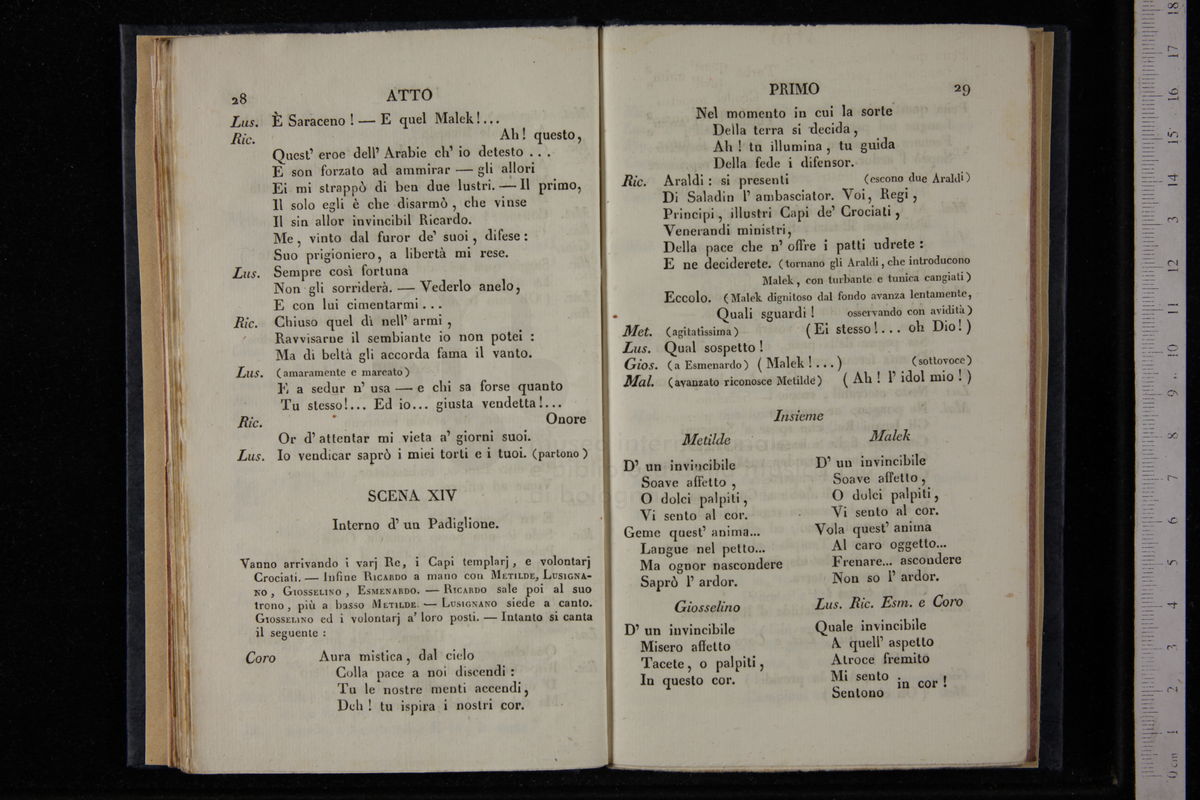 28 ATTO
Lus. È Saraceno ! — E quel Malek !...
Ric. Ah ! questo,
Quest' eroe dell' Arabie ch' io detesto . . .
E son forzato ad ammirar — gli allori
Ei mi strappò di ben due lustri. — Il primo,
Il solo egli è che disarmò , che vinse
Il sin allor invincibil Ricardo.
Me , vinto dal furor de' suoi , difese :
Suo prigioniero , a libertà mi rese.
Lus. Sempre così fortuna
Non gli sorriderà. — Vederlo anelo,
E con lui cimentarmi . . .
Ric. Chiuso quel dì nell' armi ,
Ravvisarne il sembiante io non potei :
Ma di beltà gli accorda fama il vanto.
Lus. (amaramente e marcato)
E a sedur n' usa — e chi sa forse quanto
Tu stesso!... Ed io... giusta vendetta!...
Ric. Onore
Or d' attentar mi vieta a' giorni suoi.
Lus. Io vendicar saprò i miei torti e i tuoi. (partono)
SCENA XIV
Interno d' un Padiglione.
Vanno arrivando i varj Re, i Capi templarj , e volontarj
Crociati. — Infine Ricardo a mano con Metilde, Lusigna-
no , Giosselino , Esmenardo. — Ricardo sale poi al suo
trono , più a basso Metilde. — Lusignano siede a canto.
Giosselino ed i volontarj a' loro posti. — Intanto si canta
il seguente :
Coro Aura mistica , dal cielo
Colla pace a noi discendi :
Tu le nostre menti accendi,
Deh ! tu ispira i nostri cor.
PRIMO 29
Nel momento in cui la sorte
Della terra si decida ,
Ah ! tu illumina , tu guida
Della fede i difensor.
Ric. Araldi : si presenti (escono due Araldi)
Di Saladin l' ambasciator. Voi, Regi ,
Principi , illustri Capi de' Crociati ,
Venerandi ministri,
Della pace che n' offre i patti udrete :
E ne deciderete. (tornano gli Araldi , che introducono
Malek , con turbante e tunica cangiati)
Eccolo. (Malek dignitoso dal fondo avanza lentamente,
Quali sguardi ! osservando con avidità)
Met. (agitatissima) (Ei stesso !... oh Dio ! )
Lus. Qual sospetto !
Gios. (a Esmenardo) ( Malek ! . . . ) (sottovoce)
Mal. (avanzato riconosce Metilde) ( Ah ! l' idol mio ! )
Insieme
Metilde
D' un invincibile
Soave affetto ,
O dolci palpiti ,
Vi sento al cor.
Geme quest' anima...
Langue nel petto...
Ma ognor nascondere
Saprò l' ardor.
Giosselino
D' un invincibile
Misero affetto
Tacete , o palpiti ,
In questo cor.
Malek
D' un invincibile
Soave affetto ,
O dolci palpiti ,
Vi sento al cor.
Vola quest' anima
Al caro oggetto...
Frenare... ascondere
Non so l' ardor.
Lus. Ric. Esm. e Coro
Quale invincibile
A quell' aspetto
Atroce fremito
Mi sento
Sentono in cor !